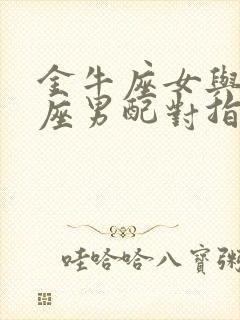 金牛座女與
座男配對指
哇哈哈八寶粥